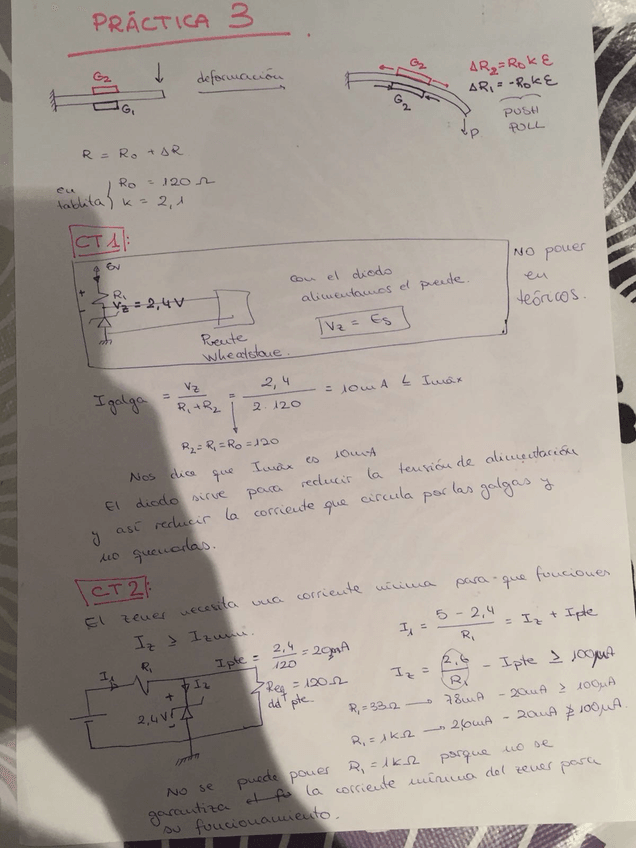 PRÁCTICA 3
G2
G1
deformación
G2
G2
P
ΔR2 = R0 k ε
ΔR1 = -R0 k ε
PUSH
PULL
R = R0 + ΔR
en tablita { R0 = 120 Ω
k = 2,1
CT1:
5V
+
R1
-
Vz = 2,4 V
Puente
Wheatstone.
con el diodo
alimentamos el puente.
Vz = Es
NO poner
en
teóricos.
I galga = Vz / (R1 + R2) = 2,4 / (2·120) = 10mA ≤ Imáx
R2 = R1 = R0 = 120
Nos dice que Imáx es 10mA
El diodo sirve para reducir la tensión de alimentación
y así reducir la corriente que circula por las galgas y
no quemarlas.
CT2:
El zener necesita una corriente mínima para que funcione
Iz ≥ Izmin.
Ipte = 2,4 / 120 = 20mA
I1
R1
Iz
+
2,4V
-
Req = 120Ω
ddt pte.
I1 = (5 - 2,4) / R1 = Iz + Ipte
Iz = 2,6 / R1 - Ipte ≥ 100μA
R1 = 33Ω → 78mA - 20mA ≥ 100μA
R1 = 1kΩ → 2,6mA - 20mA ≱ 100μA.
No se puede poner R1 = 1kΩ porque no se
garantiza la corriente mínima del zener para
su funcionamiento.